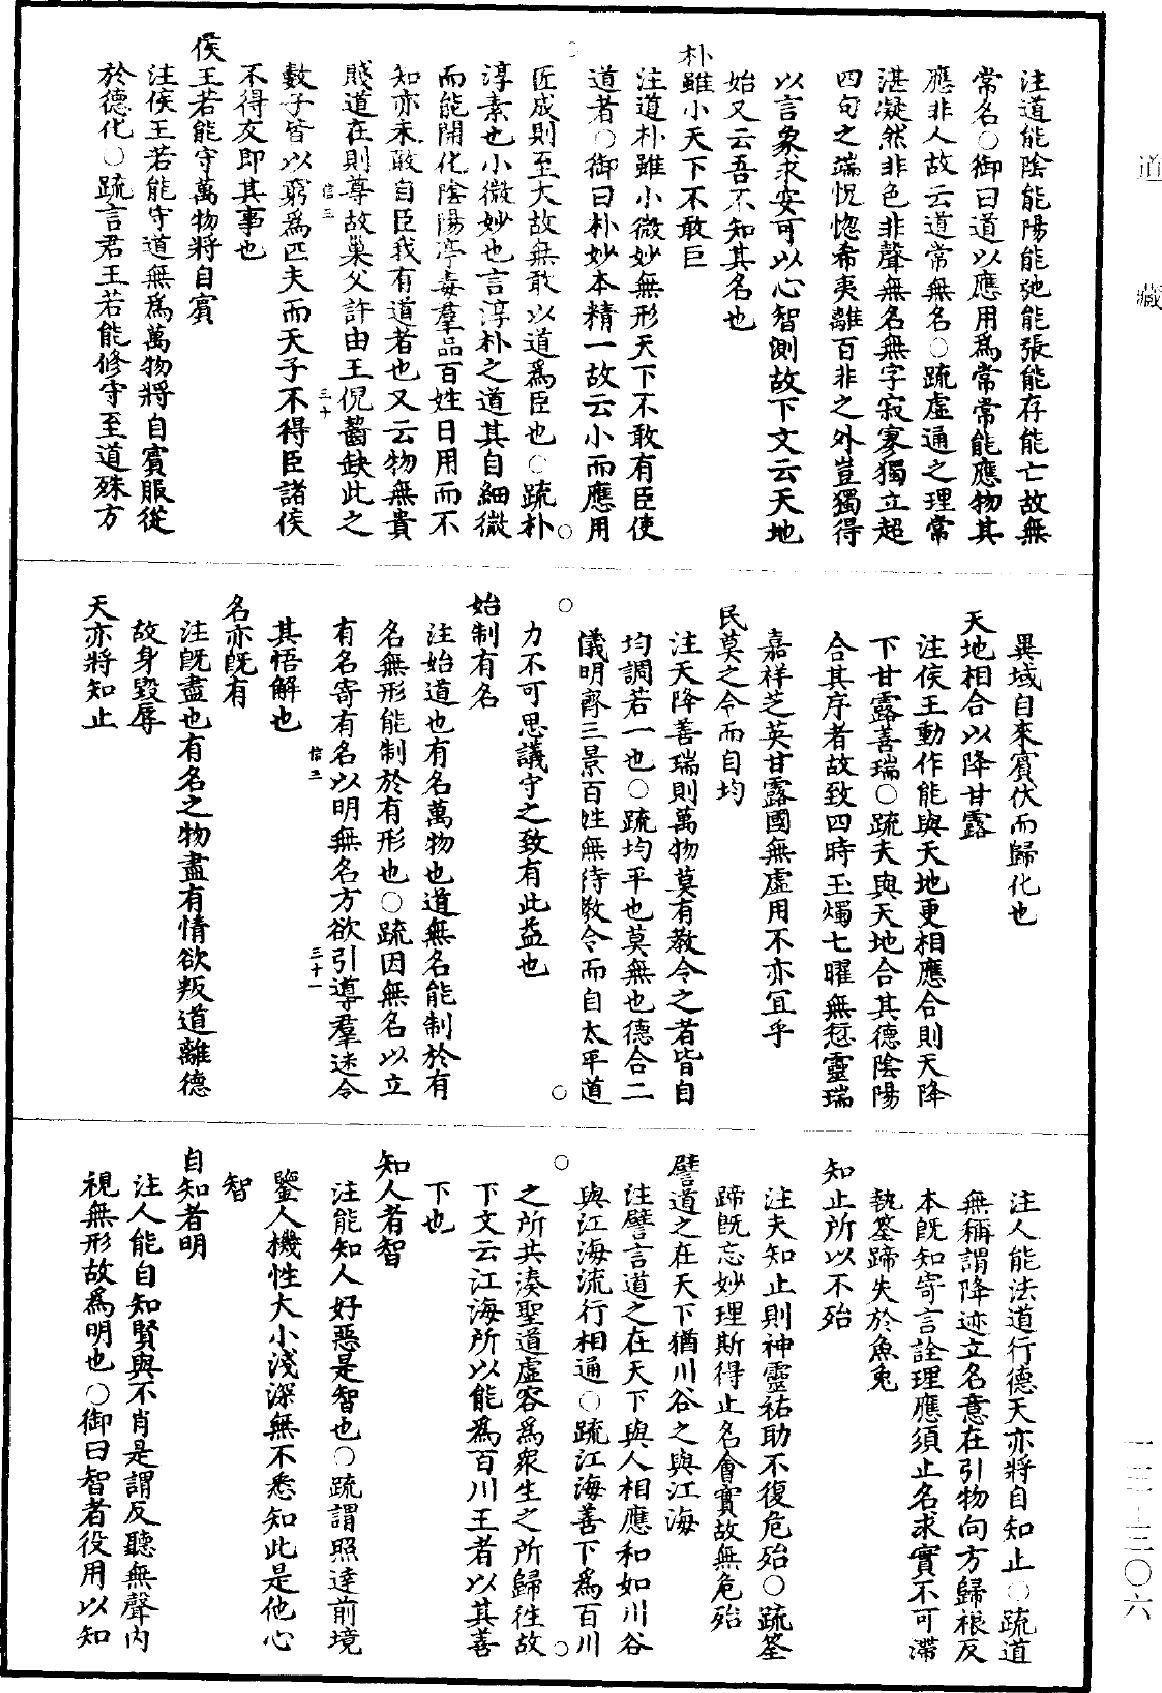 道藏
注道能陰能陽能弛能張能存能亡故無
常名○御曰道以應用爲常常能應物其
應非人故云道常無名○疏虛通之理常
湛凝然非色非聲無名無字寂寥獨立超
四句之端怳惚希夷離百非之外豈獨得
以言象求安可以心智測故下文云天地
始又云吾不知其名也
朴雖小天下不敢臣
注道朴雖小微妙無形天下不敢有臣使
道者○御曰朴妙本精一故云小而應用
匠成則至大故無敢以道爲臣也○疏朴
淳素也小微妙也言淳朴之道其自細微
而能開化陰陽亭毒羣品百姓日用而不
知亦未敢自臣我有道者也又云物無貴
賤道在則尊故巢父許由王倪齧缺此之
信三 三十
數子皆以窮爲匹夫而天子不得臣諸侯
不得友即其事也
侯王若能守萬物將自賓
注侯王若能守道無爲萬物將自賓服從
於德化○疏言君王若能修守至道殊方
異域自來賓伏而歸化也
天地相合以降甘露
注侯王動作能與天地更相應合則天降
下甘露善瑞○疏夫與天地合其德陰陽
合其序者故致四時玉燭七曜無愆靈瑞
嘉祥芝英甘露國無虛用不亦宜乎
民莫之令而自均
注天降善瑞則萬物莫有教令之者皆自
均調若一也○疏均平也莫無也德合二
儀明齊三景百姓無待教令而自太平道
力不可思議守之致有此益也
始制有名
注始道也有名萬物也道無名能制於有
名無形能制於有形也○疏因無名以立
有名寄有名以明無名方欲引導羣迷令
信三 三十一
其悟解也
名亦旣有
注旣盡也有名之物盡有情欲叛道離德
故身毀辱
天亦將知止
注人能法道行德天亦將自知止○疏道
無稱謂降迹立名意在引物向方歸根反
本旣知寄言詮理應須止名求實不可滯
執筌蹄失於魚兔
知止所以不殆
注夫知止則神靈祐助不復危殆○疏筌
蹄旣忘妙理斯得止名會實故無危殆
譬道之在天下猶川谷之與江海
注譬言道之在天下與人相應和如川谷
與江海流行相通○疏江海善下爲百川
之所共湊聖道虛容爲衆生之所歸往故
下文云江海所以能爲百川王者以其善
下也
知人者智
注能知人好惡是智也○疏謂照達前境
鑒人機性大小淺深無不悉知此是他心
智
自知者明
注人能自知賢與不肖是謂反聽無聲內
視無形故爲明也○御曰智者役用以知
一一三〇六